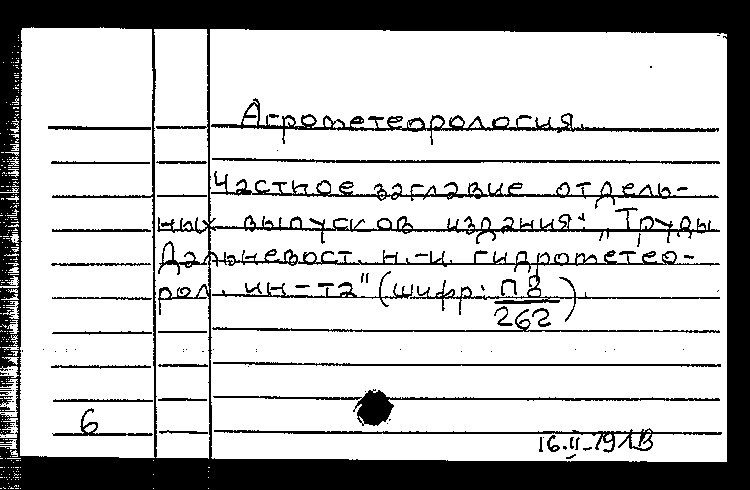 Агрометеорология.
Частное заглавие отдель-
ных выпусков издания: „Труды
Дальневост. н.-и. гидрометео-
рол. ин-та" (шифр: П8
262).
6
16.II-79